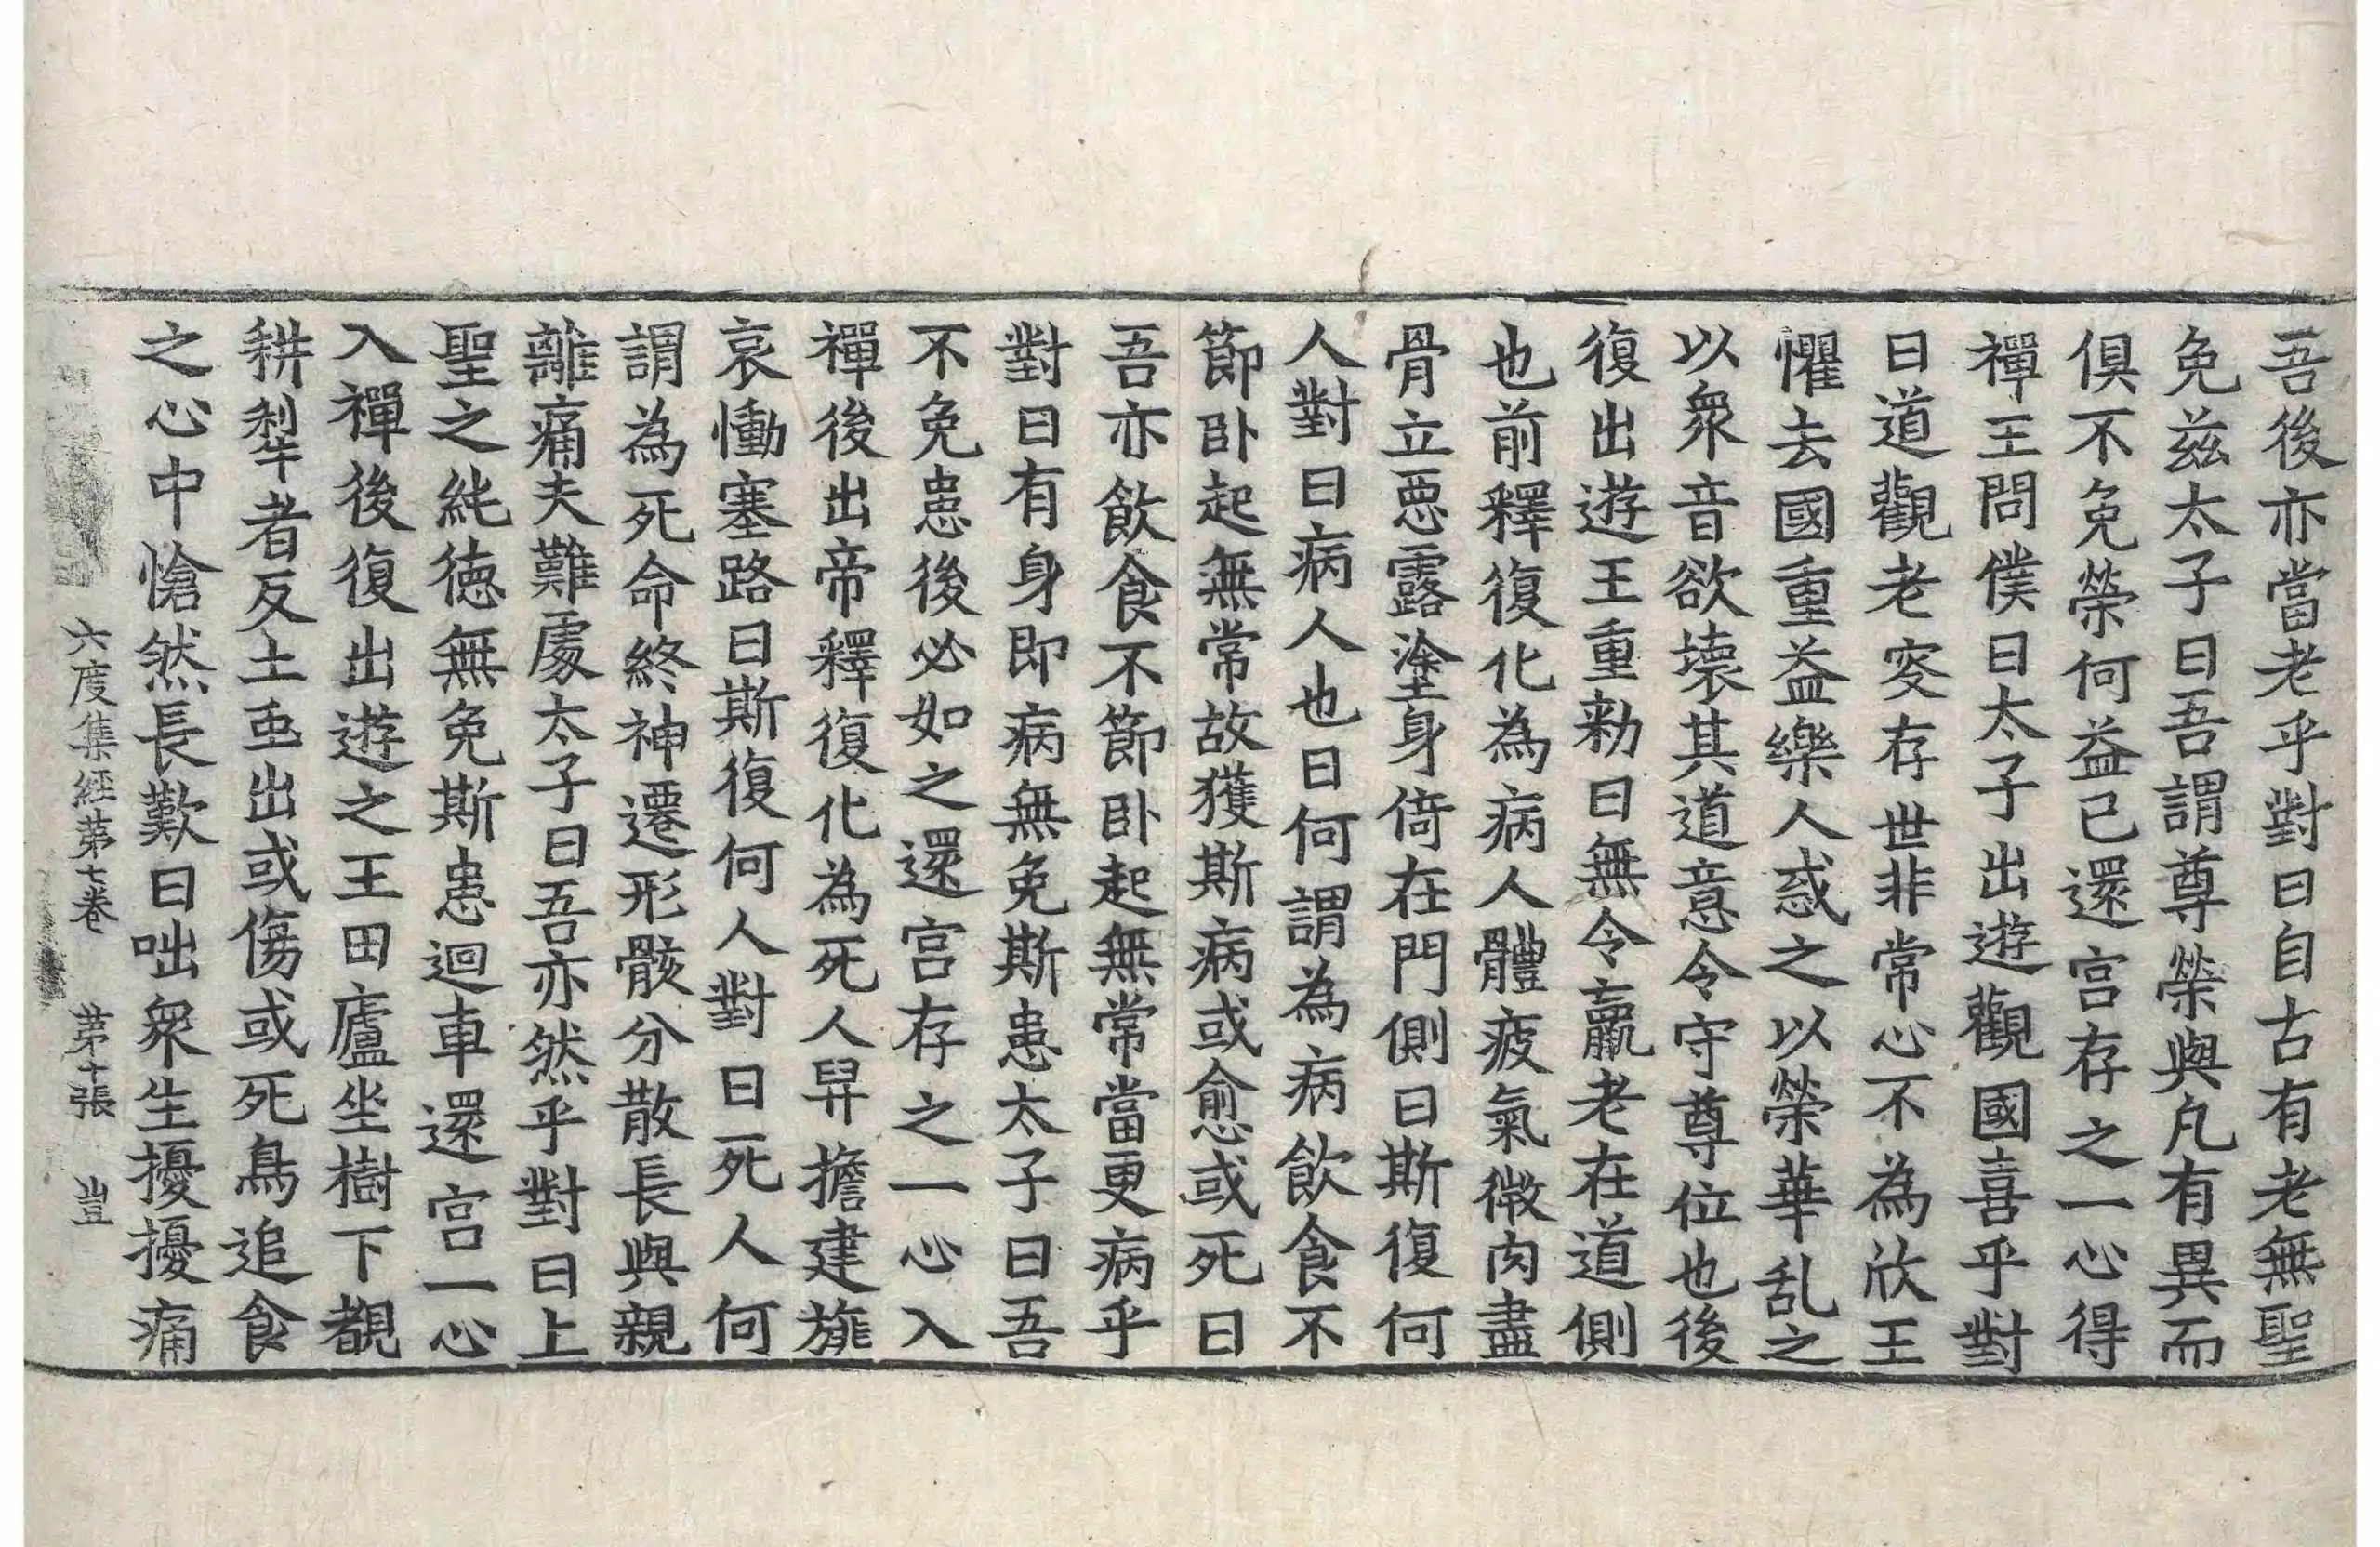 吾後亦當老乎對曰自古有老無聖
免兹太子曰吾謂尊榮與凡有異而
俱不免榮何益已還宫存之一心得
禪王問僕曰太子出遊觀國喜乎對
曰道觀老叜存世非常心不為欣王
懼去國重益樂人惑之以榮華乱之
以衆音欲壞其道意令守尊位也後
復出遊王重勑曰無令羸老在道側
也前釋復化為病人體疲氣微肉盡
骨立惡露塗身倚在門側曰斯復何
人對曰病人也曰何謂為病飲食不
節卧起無常故獲斯病或愈或死曰
吾亦飲食不節卧起無常當更病乎
對曰有身即病無免斯患太子曰吾
不免患後必如之還宫存之一心入
禪後出帝釋復化為死人舁擔建旐
哀慟塞路曰斯復何人對曰死人何
謂為死命終神遷形骸分散長與親
離痛夫難處太子曰吾亦然乎對曰上
聖之純德無免斯患迴車還宫一心
入禪後復出遊之王田廬坐樹下覩
耕犁者反土䖝出或傷或死鳥追食
之心中愴然長歎曰咄衆生擾擾痛
六度集經第七卷 第十張 豈